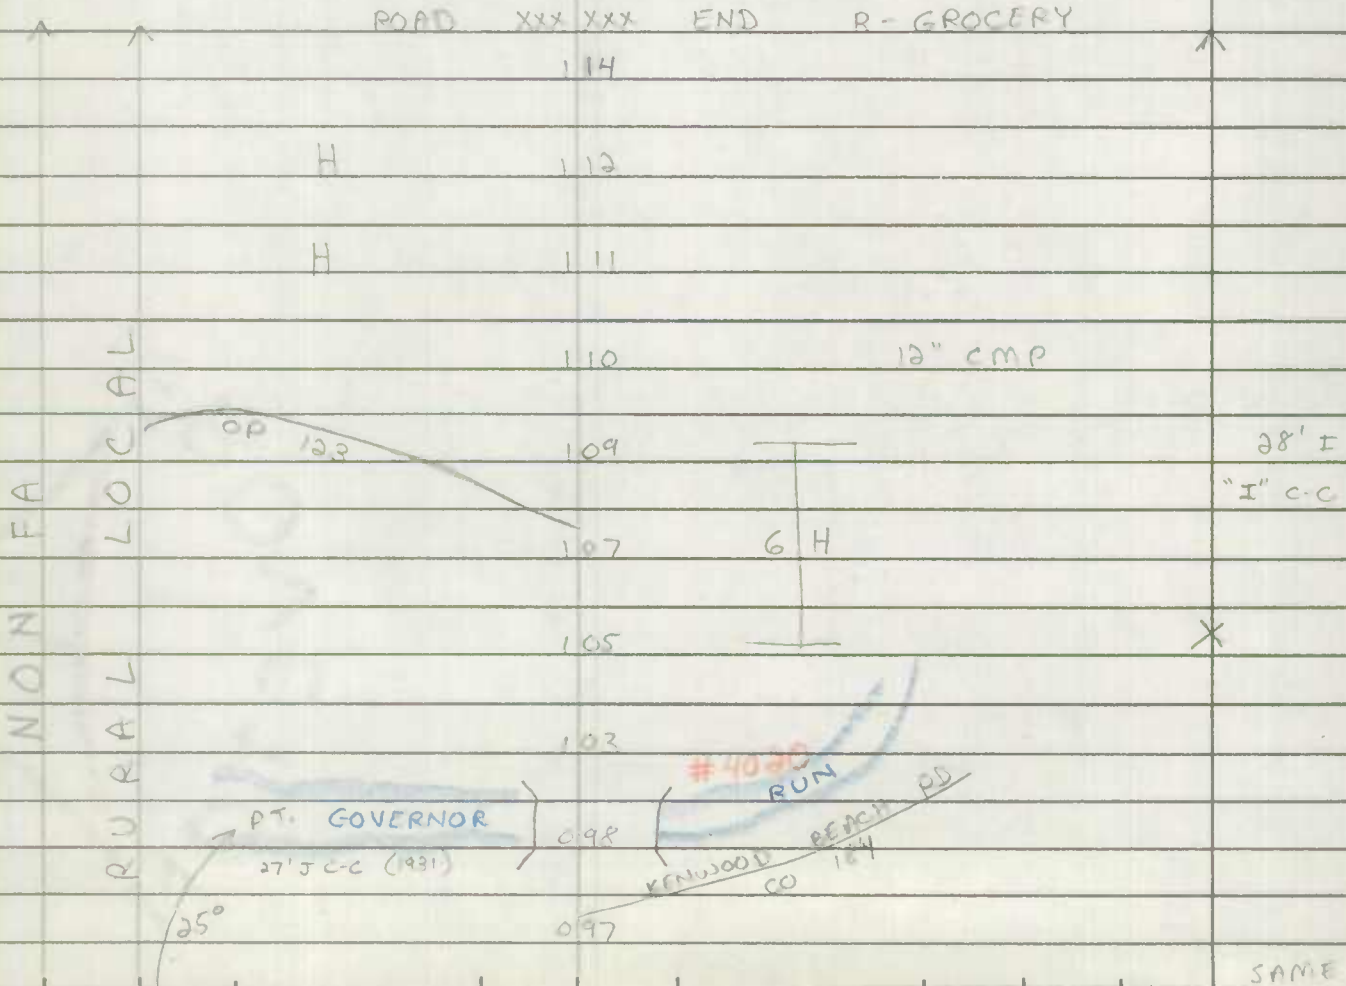 ROAD XXX XXX END R - GROCERY
1.14
H 1.12
H 1.11
1.10 12" CMP
OP 123 1.09 28' I
"I" C-C
1.07 6 H
1.05
1.03
#4020
RUN
PT. GOVERNOR 0.98
27' J C-C (1931)
KENWOOD BEACH RD
CO 184
25°
0.97
SAME
NON FA
RURAL LOCAL